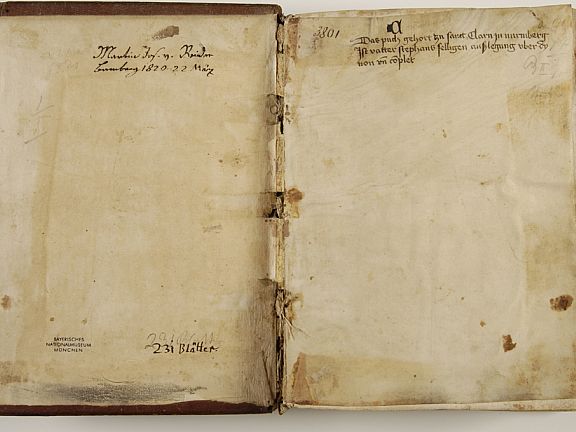 Martin Jos. v. Reider
Bamberg 1820. 22 März
BAYERISCHES
NATIONALMUSEUM
MÜNCHEN
231 Blätter
3801
A
Das puch gehort zu sant Clarn zu nurmberg
Ist vatter stephans selligen außlegung vber dy
non vn coplet